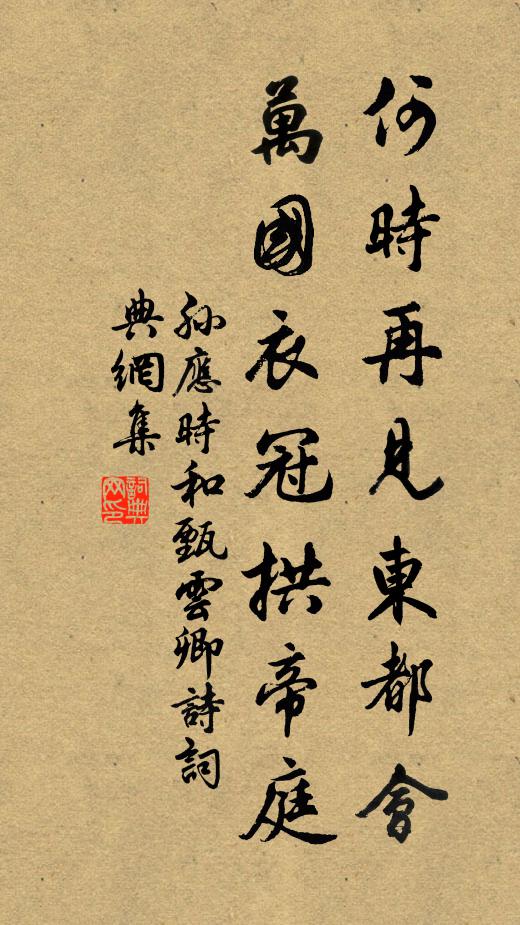 何時再見東都會
萬國衣冠拱帝庭
孫應時和甄雲卿詩詞
典網集
詞典網印